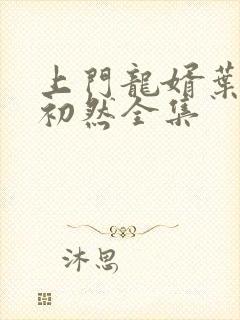 上門龍婿葉
初然全集
沐思